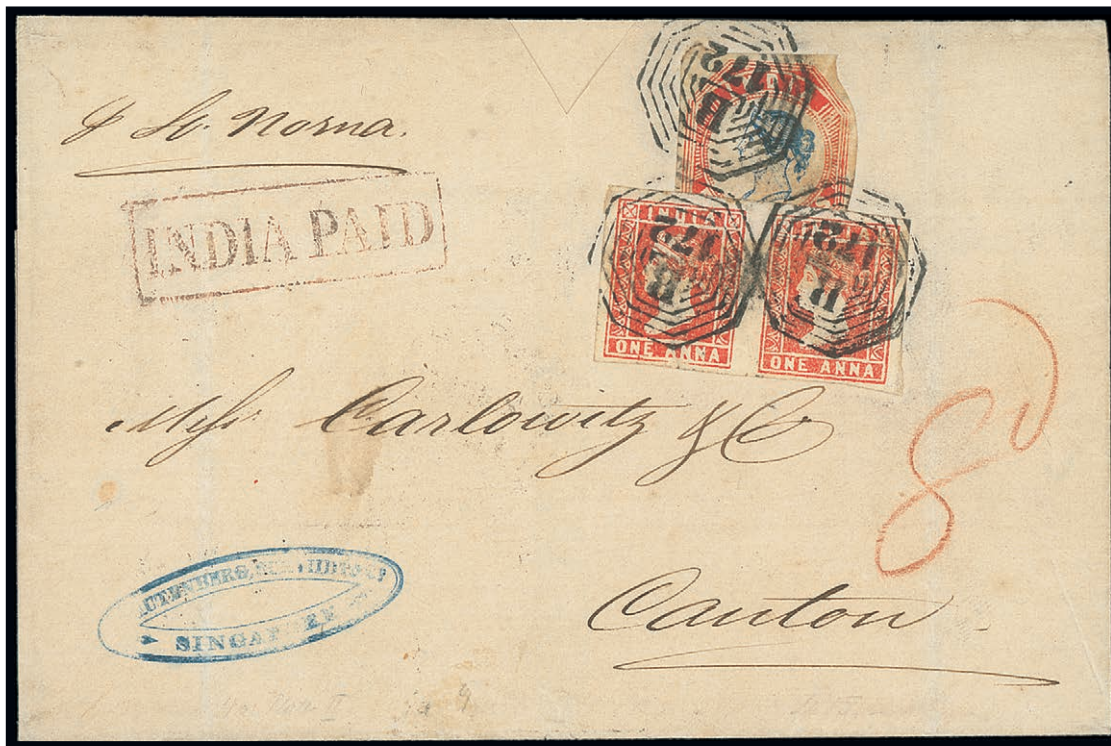 p St. Norna.
INDIA PAID
B
172
INDIA
B
172
ONE ANNA
B
172
ONE ANNA
Messrs Carlowitz & Co
8d
SINGAPORE
Canton